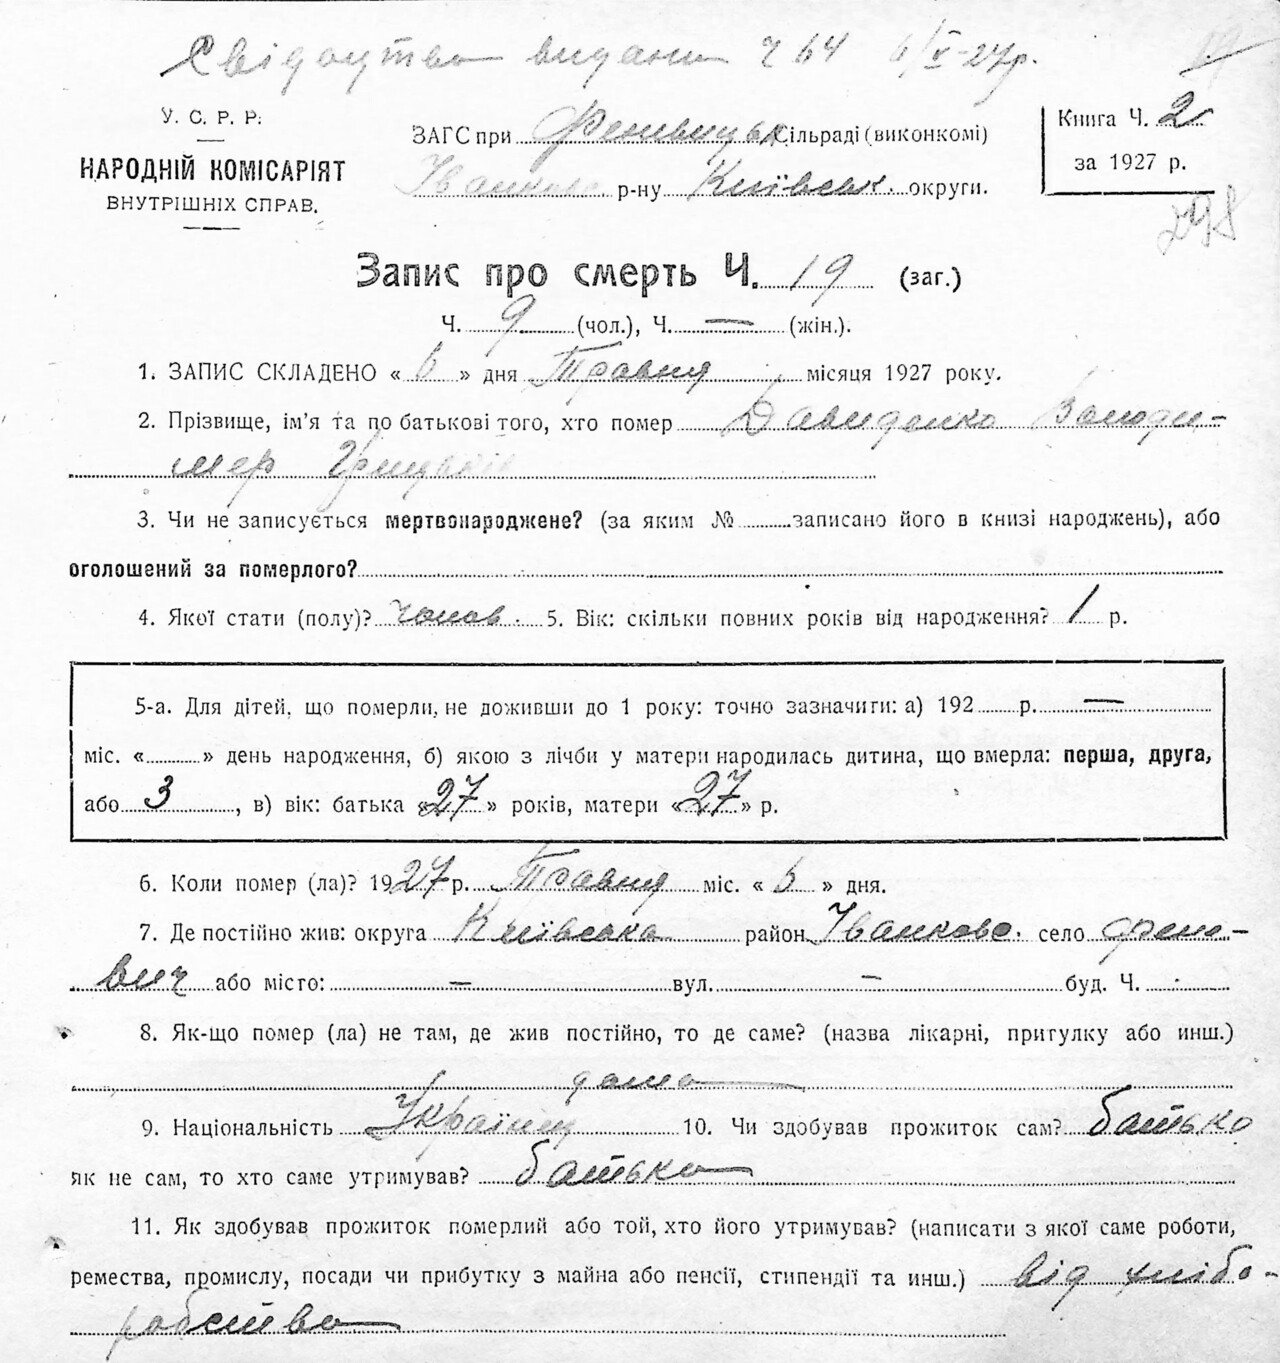 Свідоцтво видано Ч 64 6/X-27р.
19
У. С. Р. Р.
НАРОДНІЙ КОМІСАРІЯТ
ВНУТРІШНІХ СПРАВ.
ЗАГС при Феневицьк Сільраді (виконкомі)
Іванково р-ну Київськ. округи.
Книга Ч. 2
за 1927 р.
298
Запис про смерть Ч. 19 (заг.)
Ч. 9 (чол.), Ч. — (жін.).
1. ЗАПИС СКЛАДЕНО « 6 » дня Травня місяця 1927 року.
2. Прізвище, ім'я та по батькові того, хто помер Давиденко Володи-
мер Грицьків
3. Чи не записується мертвонароджене? (за яким № записано його в книзі народжень), або
оголошений за померлого?
4. Якої стати (полу)? чолов. 5. Вік: скільки повних років від народження? 1 р.
5-а. Для дітей, що померли, не доживши до 1 року: точно зазначити: а) 192 р. —
міс. « » день народження, б) якою з лічби у матери народилась дитина, що вмерла: перша, друга,
або 3 , в) вік: батька «27» років, матери «27» р.
6. Коли помер (ла)? 1927 р. Травня міс. « 6 » дня.
7. Де постійно жив: округа Київська район Іванково. село Фене-
вич або місто: — вул. — буд. Ч. -
8. Як-що помер (ла) не там, де жив постійно, то де саме? (назва лікарні, притулку або инш.)
дома
9. Національність Україн. 10. Чи здобував прожиток сам? батько
як не сам, то хто саме утримував? батько
11. Як здобував прожиток померлий або той, хто його утримував? (написати з якої саме роботи,
ремества, промислу, посади чи прибутку з майна або пенсії, стипендії та инш.) від хлібо-
робства